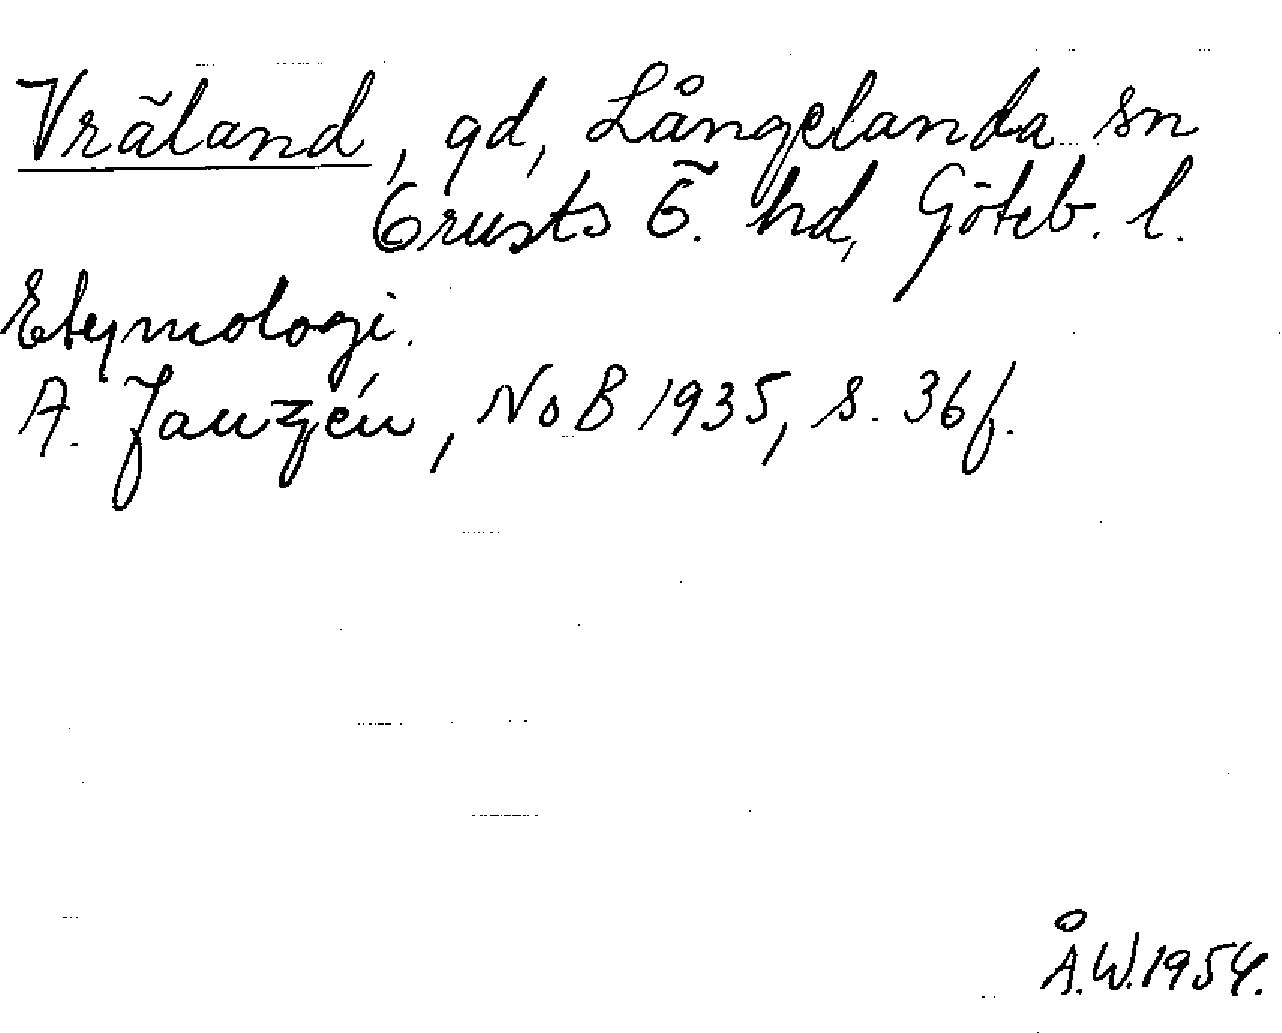 Vräland, gd, Långelanda sn
Orusts Ö. hd, Göteb. l.
Etymologi.
A. Janzén, NoB 1935, s. 36f.
Å.W.1954.